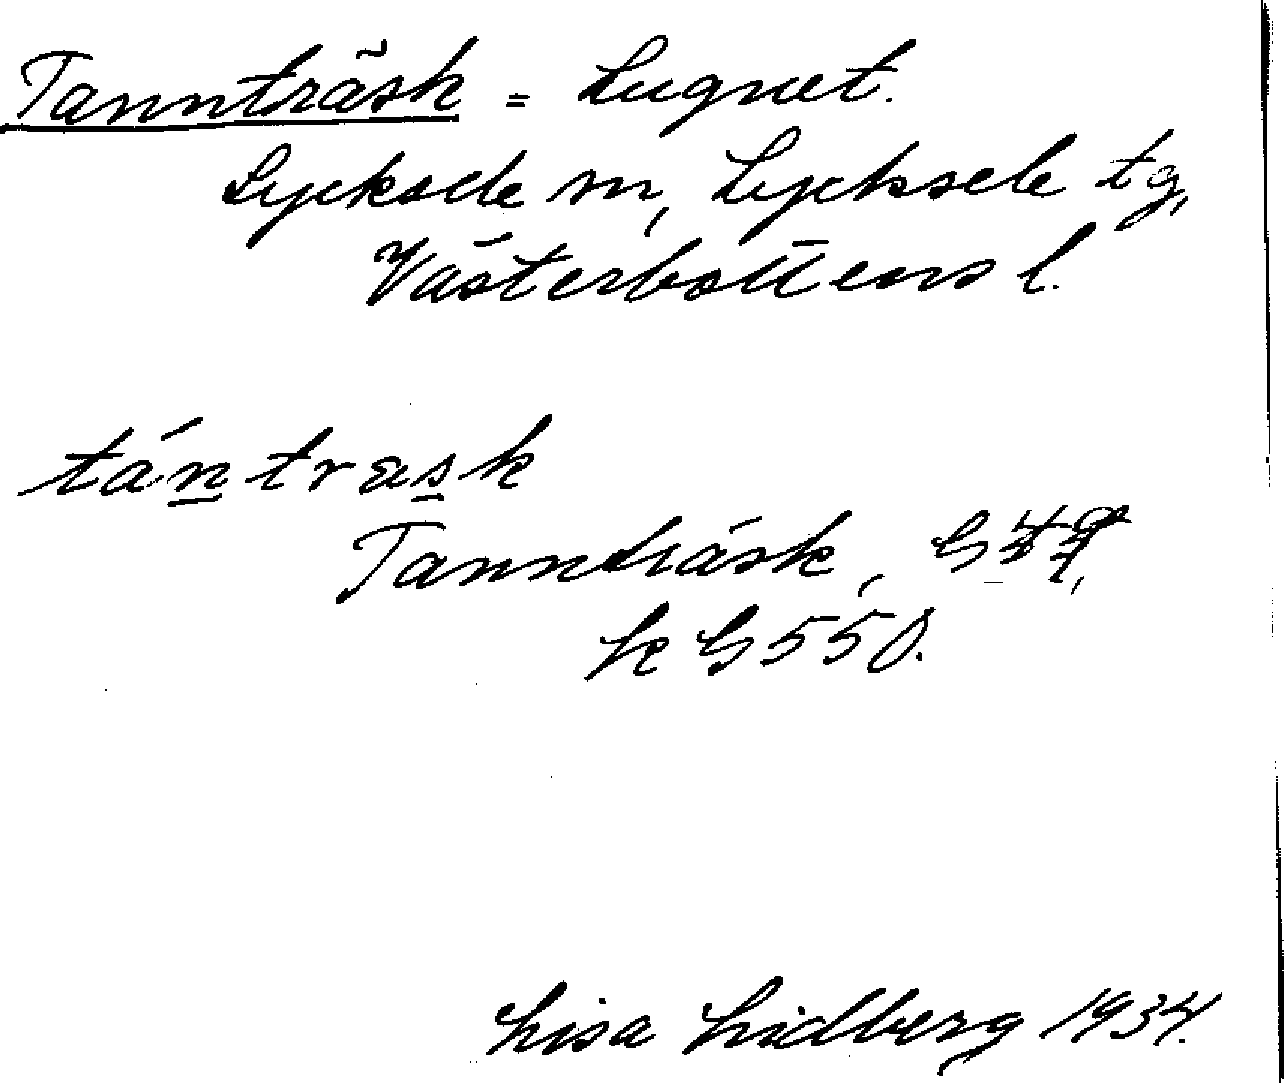 Tannträsk = Lugnet.
Lycksele m, Lycksele tg,
Västerbottens l.
tántrask
Tannträsk,
550.
Lisa Lidberg 1934.